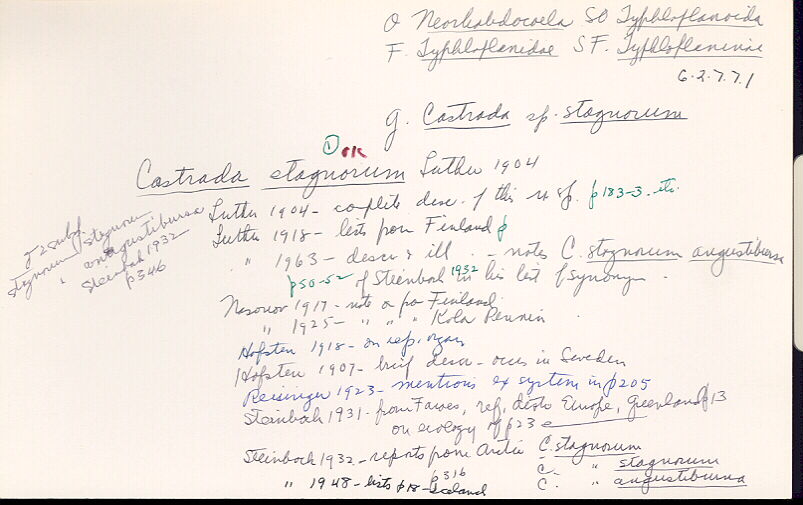 O Neorhabdocoela SO Typhloplanoida
F. Typhloplanidae SF. Typhloplaninae
6.2.7.7.1
g. Castrada sp. stagnorum
① OK
Castrada stagnorum Luther 1904
Luther 1904 - complete desc. of this n sp. p183-3. etc.
Luther 1918 - lists from Finland p
" 1963 - descr & ill. - notes C. stagnorum angustibursa
p50-52 of Steinbock 1932 in his list of synonyms.
J 2 subsp.
stagnorum stagnorum
" angustibursa
Steinbock 1932
p346
Nasonov 1917 - note on fr Finland.
" 1925 - " " " Kola Penin.
Hofsten 1918 - on rep. organ
Hofsten 1907 - brief descr - occurs in Sweden
Reisinger 1923 - mentions ex system in p205
Steinböck 1931 - from Faroes, ref, distr Europe, Greenland p13
on ecology of p23
Steinbock 1932 - reports from Arctic C. stagnorum
p316 C. " stagnorum
" 1948 - lists p18 - Iceland C. " angustibursa